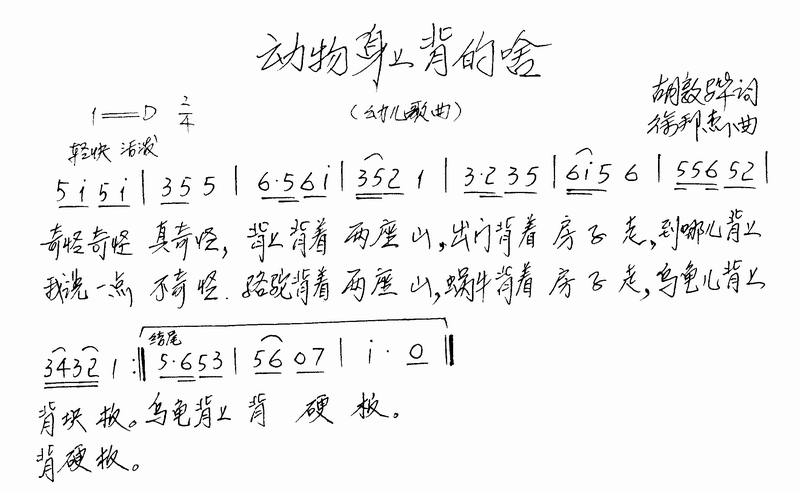 动物身上背的啥
(幼儿歌曲)
胡敦骅词
1=D 2/4
徐邦杰曲
轻快 活泼
5 i 5 i | 3 5 5 | 6·5 6 i | 3 5 2 1 | 3·2 3 5 | 6 i 5 6 | 5 5 6 5 2 |
奇怪奇怪 真奇怪, 背上背着 两座 山, 出门背着 房子 走, 到哪儿背上
我说一点 不奇怪. 骆驼背着 两座 山, 蜗牛背着 房子 走, 乌龟儿背上
结尾
3 4 3 2 1 :‖ 5·6 5 3 | 5 6 0 7 | i · 0 ‖
背块 板。乌龟背上 背 硬 板。
背硬板。